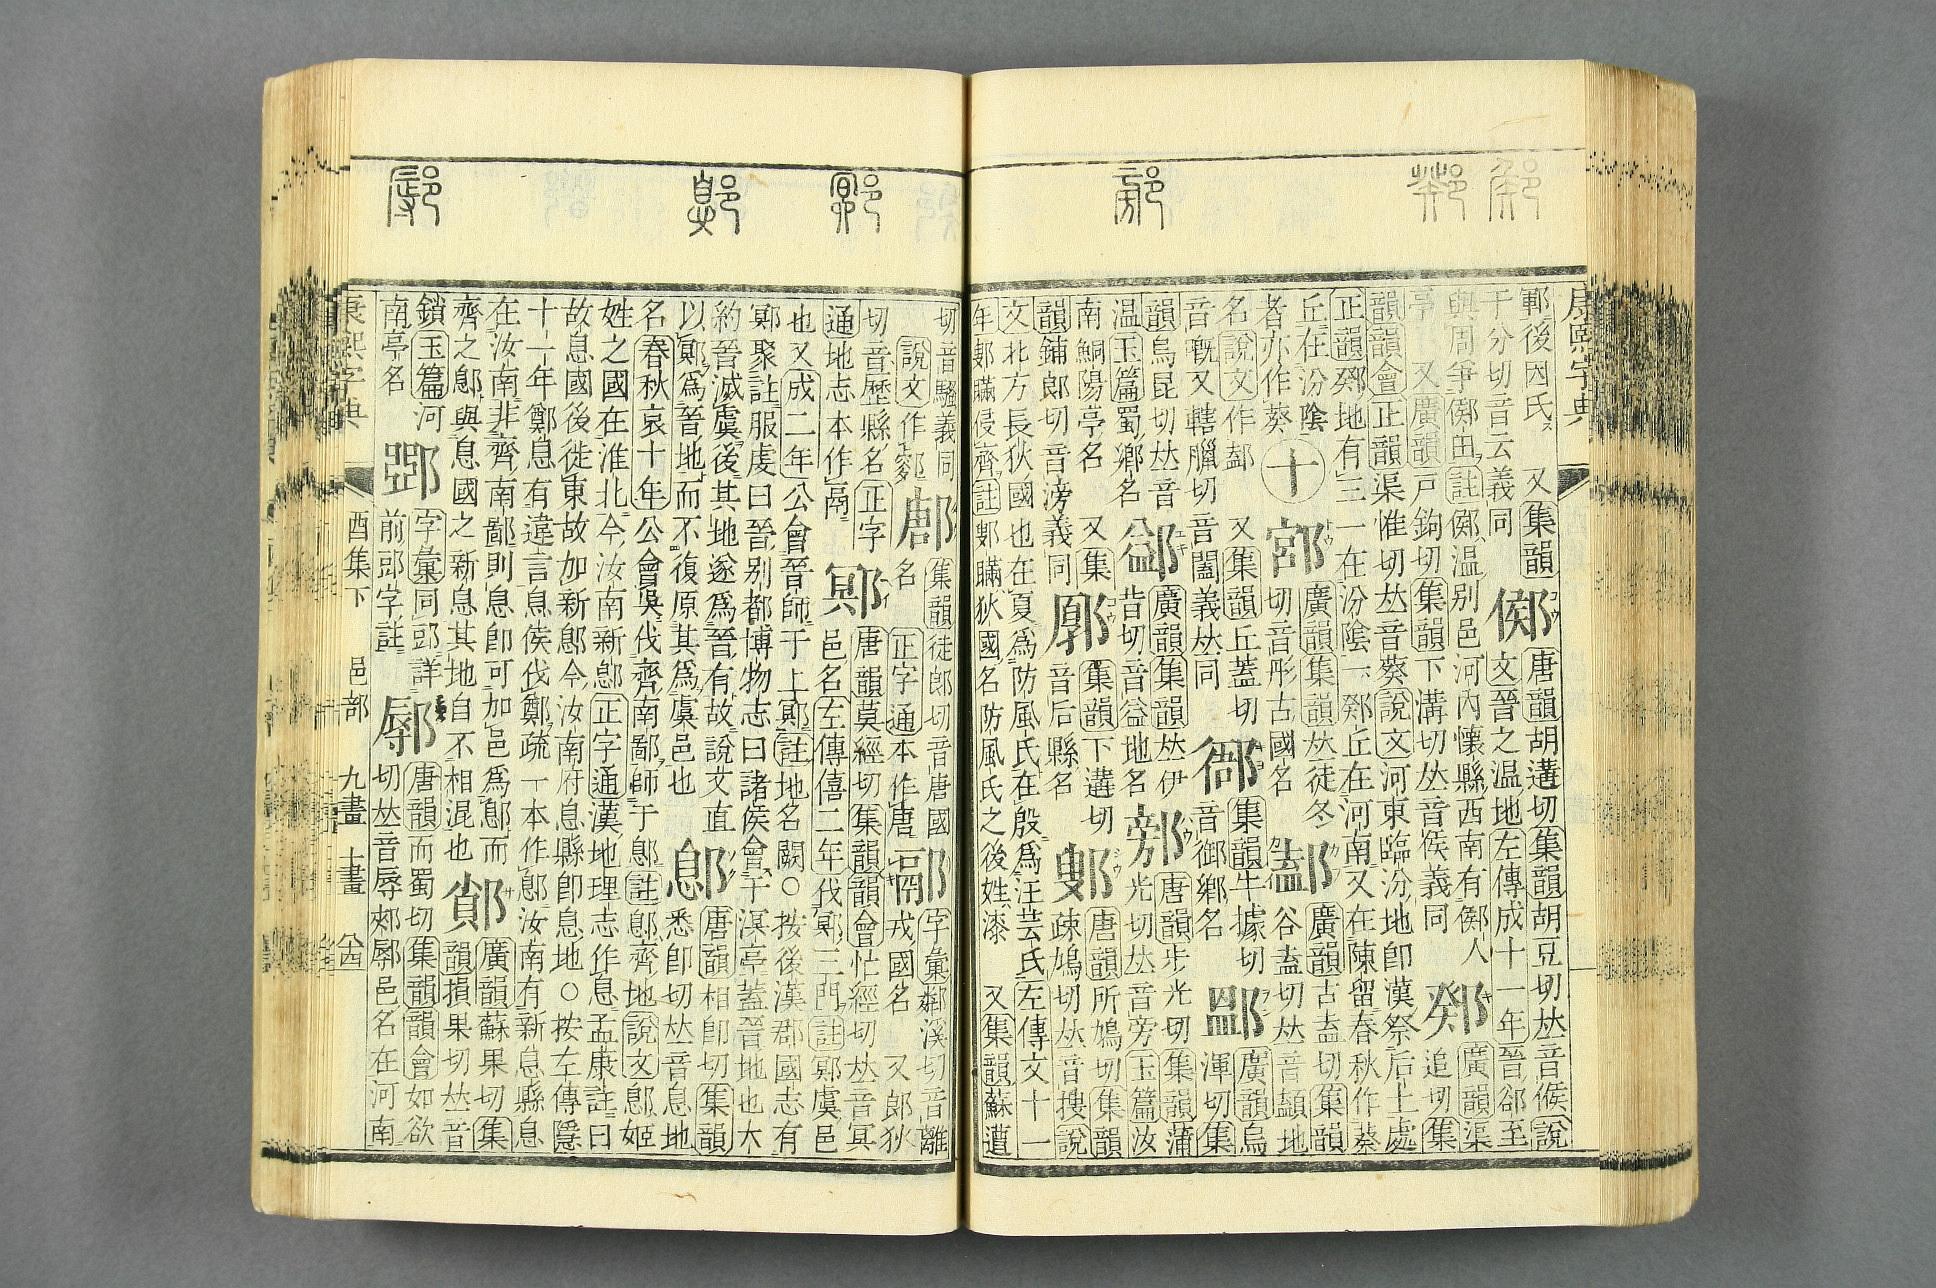 康熙字典
鄆後因氏 又集韻
于分切音云義同
鄇
唐韻胡遘切集韻胡豆切𠀤音候說
文晉之温地左傳成十一年晉郤至
與周爭鄇田註鄇温别邑河內懷縣西南有鄇人
亭 又廣韻戸鉤切集韻下溝切𠀤音侯義同
鄈
廣韻渠
追切集
韻韻會正韻渠惟切𠀤音葵說文河東臨汾地卽漢祭后土處
正韻鄈地有三一在汾陰一鄈丘在河南又在陳留春秋作葵
丘在汾陰
者亦作葵
十
廣韻集韻𠀤徒冬
切音彤古國名
廣韻古盍切集韻
谷盍切𠀤音䫦地
名說文作 又集韻丘蓋切
音嘅又轄臘切音闔義𠀤同
集韻牛據切
音御鄕名
廣韻烏
渾切集
韻烏昆切𠀤音
温玉篇蜀鄕名
廣韻集韻𠀤伊
昔切音益地名
唐韻步光切集韻蒲
光切𠀤音旁玉篇汝
南鮦陽亭名 又集
韻鋪郎切音滂義同
集韻下遘切
音后縣名
鄋
唐韻所鳩切集韻
疎鳩切𠀤音搜說
文北方長狄國也在夏爲防風氏在殷爲汪芒氏左傳文十一
年鄋瞞侵齊註鄋瞞狄國名防風氏之後姓漆 又集韻蘇遭
切音騷義同
說文作
鄌
集韻徒郎切音唐國
名 正字通本作唐
鄏
字彙鄰溪切音離
戎國名 又郎狄
切音歷縣名正字
通地志本作鬲
鄍
唐韻莫經切集韻韻會忙經切𠀤音冥
邑名左傳僖二年伐鄍三門註鄍虞邑
也又成二年公會晉師于上鄍註地名闕○按後漢郡國志有
鄍聚註服虔曰晉别都博物志曰諸侯會于溟亭蓋晉地也大
約晉滅虞後其地遂爲晉有故說文直
以鄍爲晉地而不復原其爲虞邑也
鄎
唐韻相卽切集韻
悉卽切𠀤音息地
名春秋哀十年公會吳伐齊南鄙師于鄎註鄎齊地說文鄎姬
姓之國在淮北今汝南新鄎正字通漢地理志作息孟康註曰
故息國後徙東故加新鄎今汝南府息縣卽息地○按左傳隱
十一年鄭息有違言息侯伐鄭疏一本作鄎汝南有新息縣息
在汝南非齊南鄙則息卽可加邑爲鄎而
齊之鄎與息國之新息其地自不相混也
䣔
廣韻蘇果切集
韻損果切𠀤音
鎖玉篇河
南亭名
字彙同郖詳
前郖字註
鄏
唐韻而蜀切集韻韻會如欲
切𠀤音辱郟鄏邑名在河南
康熙字典
酉集下
邑部
九畫 十畫